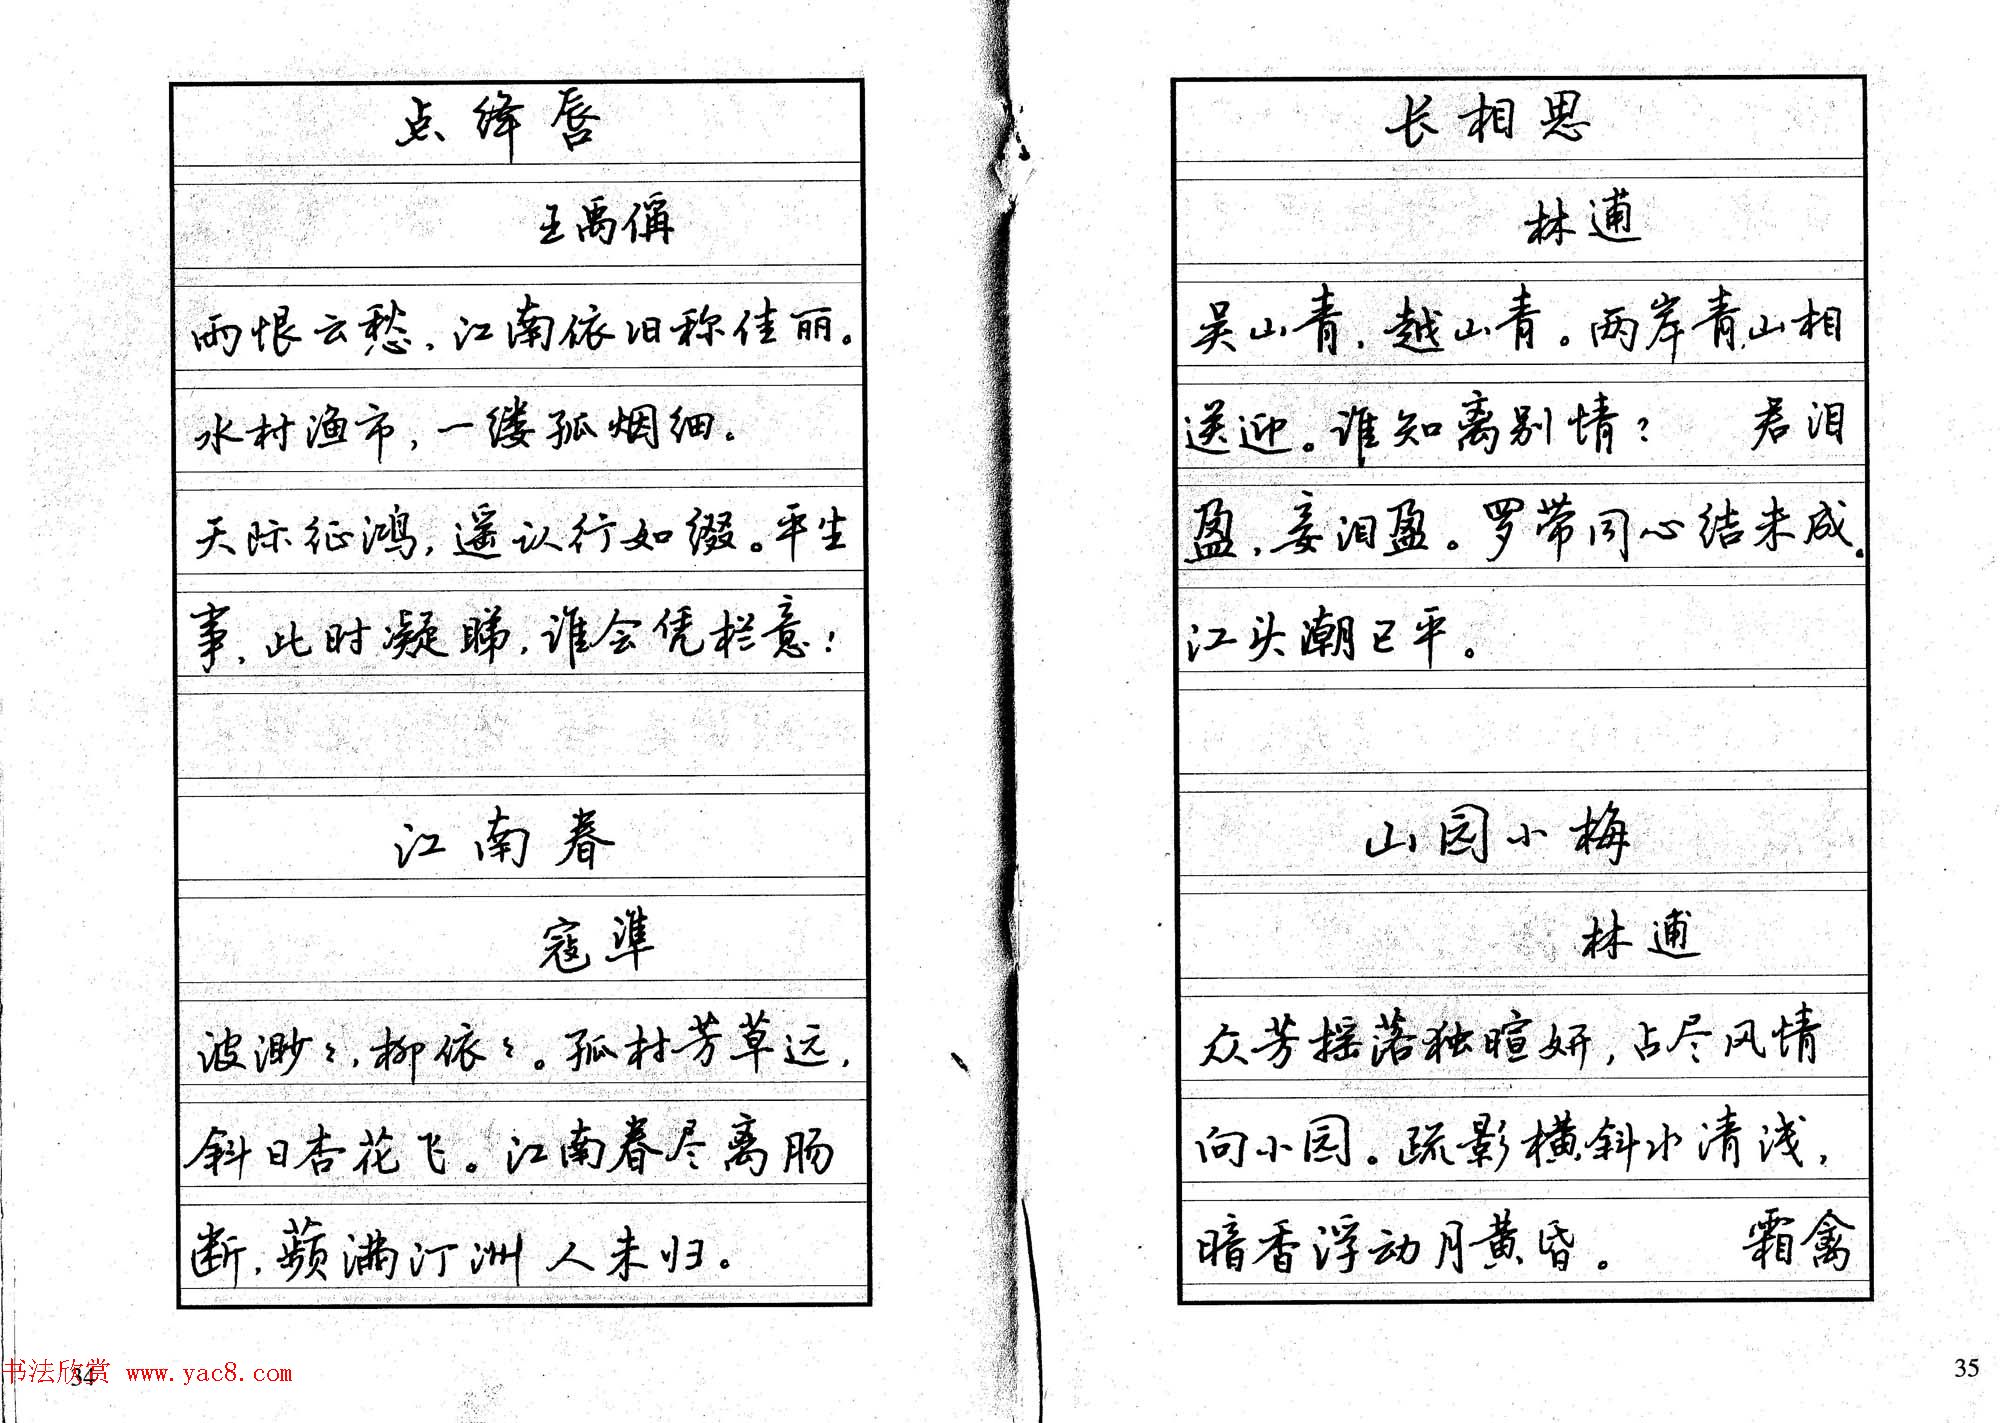 点绛唇
王禹偁
雨恨云愁，江南依旧称佳丽。
水村渔市，一缕孤烟细。
天际征鸿，遥认行如缀。平生
事，此时凝睇，谁会凭栏意！
江南春
寇準
波渺々，柳依々。孤村芳草远，
斜日杏花飞。江南春尽离肠
断，蘋满汀洲人未归。
书法欣赏 www.yac8.com
34
长相思
林逋
吴山青，越山青。两岸青山相
送迎。谁知离别情？ 君泪
盈，妾泪盈。罗带同心结未成。
江头潮已平。
山园小梅
林逋
众芳摇落独暄妍，占尽风情
向小园。疏影横斜水清浅，
暗香浮动月黄昏。 霜禽
35